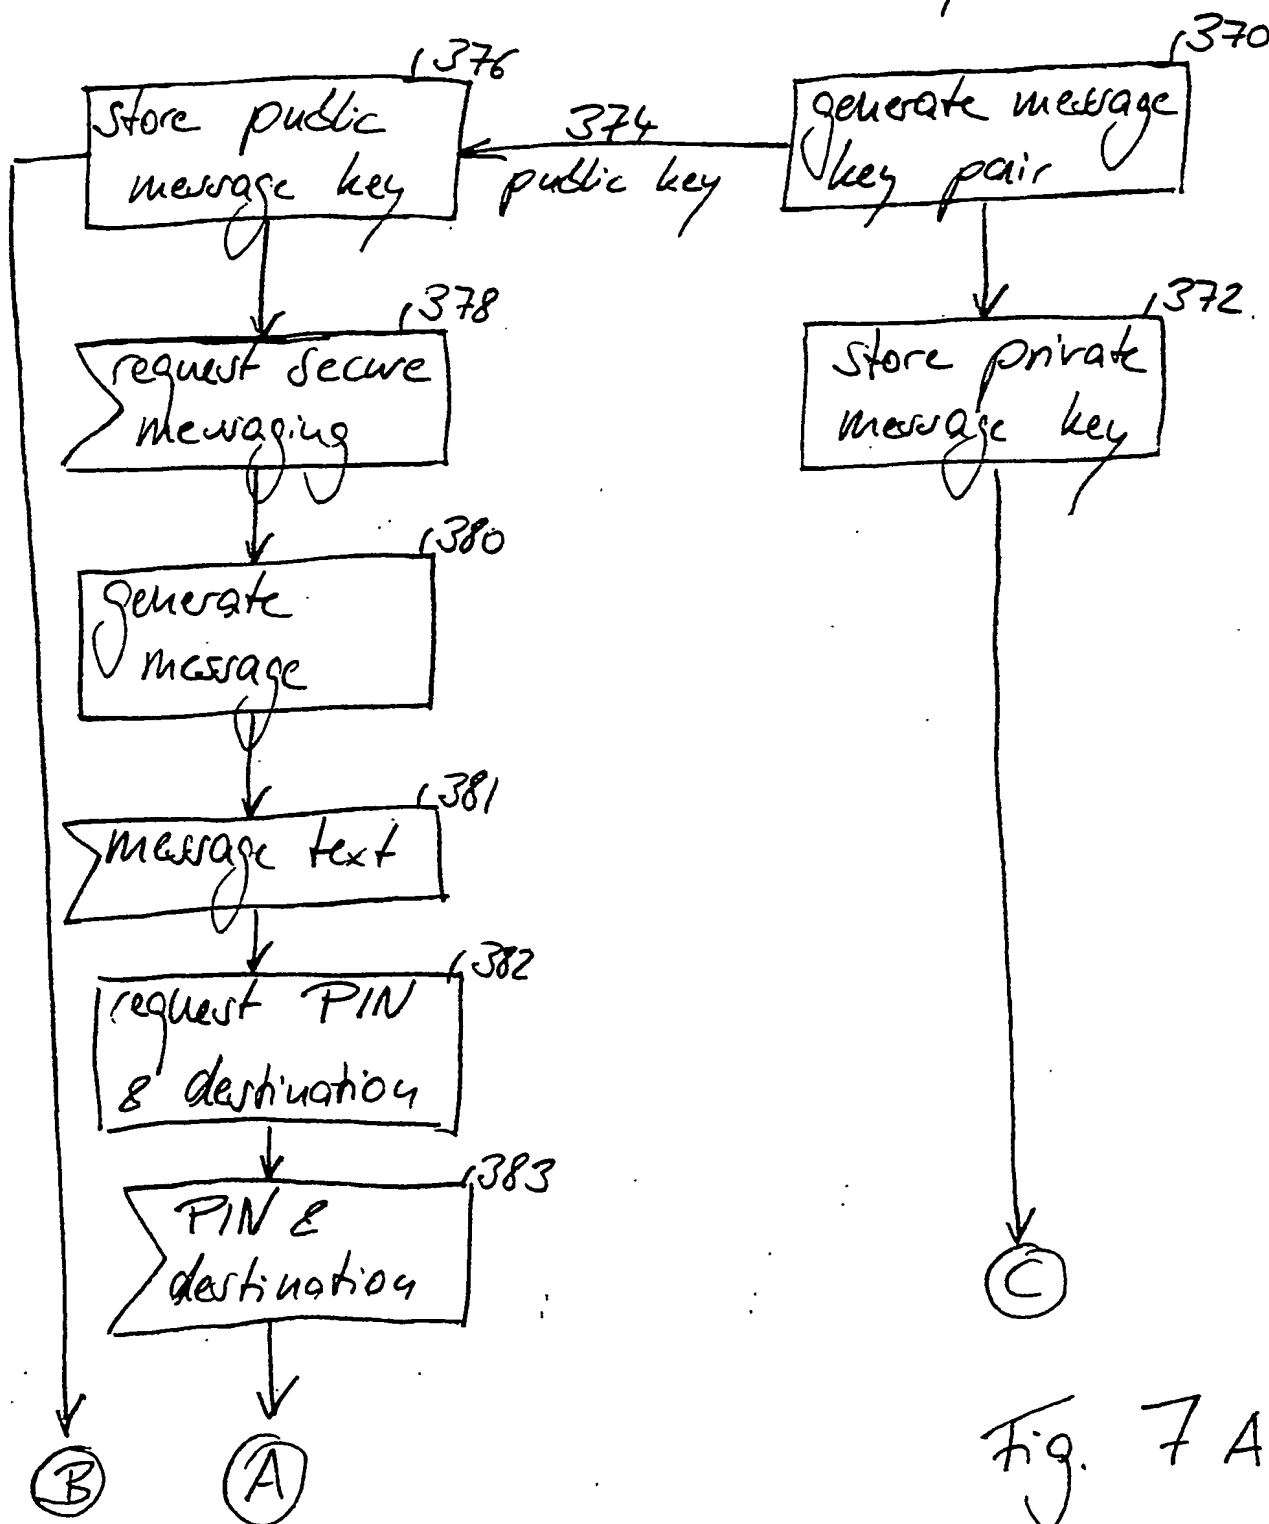 376
store public
message key
374
public key
370
generate message
key pair
378
request secure
messaging
372
store private
message key
380
generate
message
381
message text
382
request PIN
& destination
383
PIN &
destination
C
B
A
Fig. 7A